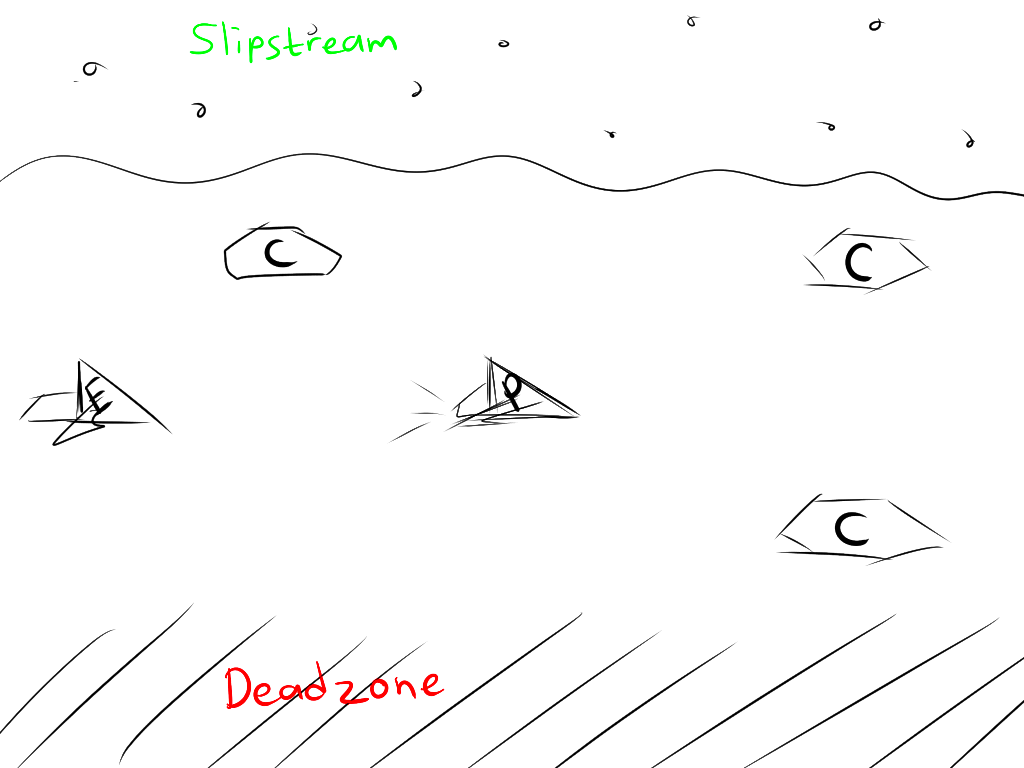 Slipstream
C
C
E
P
C
Deadzone